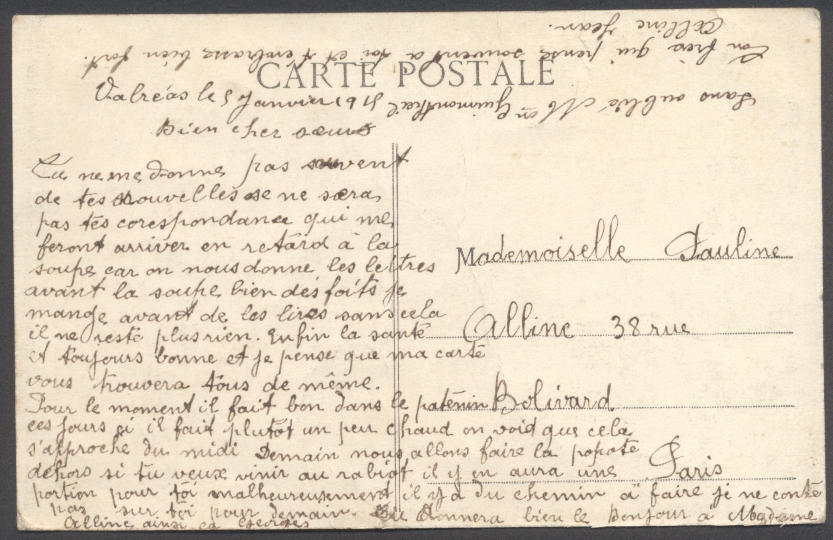 CARTE POSTALE
Valréas le 5 Janvier 1915
Bien cher sœurs
Tu ne me donne pas souvent
de tes nouvelles se ne sera
pas tes corespondance qui me
feront arriver en retard à la
soupe car on nous donne les lettres
avant la soupe bien des foits je
mange avant de les lires sans cela
il ne reste plus rien. Enfin la santé
et toujours bonne et je pense que ma carte
vous trouvera tous de même.
Pour le moment il fait bon dans le patenin
ces jours si il fait plutôt un peu chaud on void que cela
s'approche du midi Demain nous allons faire la popote
dehors si tu veux vinir au rabiot il y en aura une
portion pour toi malheureusement il y a du chemin à faire je ne conte
pas sur toi pour demain. Tu donnera bien le Bonjour à Madame
Alline ainsi ca Georges
Sans oublié M en
Ton frère qui pense souvent a toi et t'embrasse bien fort.
Alline Jean.
Mademoiselle Pauline
Alline 38 rue
Bolivard
Paris